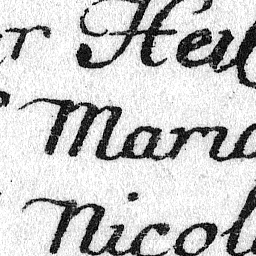 r Heil
Maria
Nicol